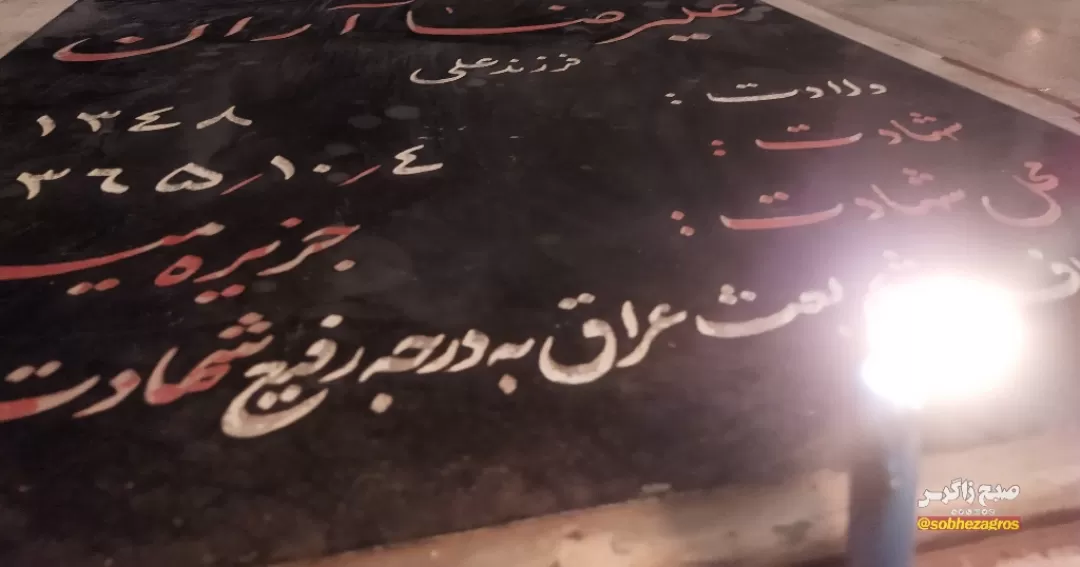 علیرضا آران
فرزند علی
ولادت : ۱۳۴۸
شهادت : ۳۶۵/۱۰/۴
محل شهادت : جزیره
بعث عراق به درجه رفیع شهادت
صبح زاگرس
@sobhezagros